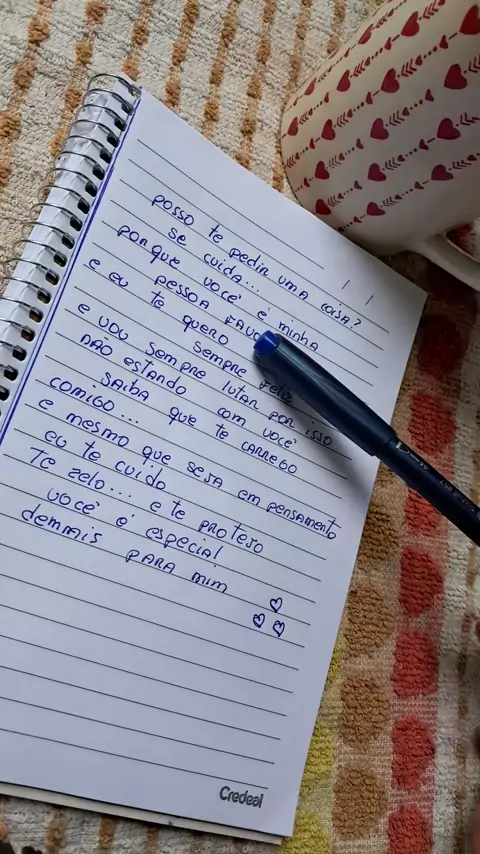 posso te pedir uma coisa?
se cuida...
porque você é minha
pessoa FAVO
e eu te quero sempre FELIZ
e vou sempre lutar por isso
não estando com você
saiba que te carrego
comigo...
e mesmo que seja em pensamento
eu te cuido
Te zelo... e te protejo
você é especial
demais para mim
Credeal